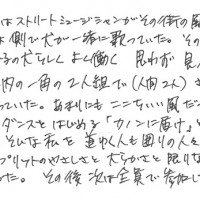 はストリートミュージシャンがその街の風
は側で犬が一緒に歌っていた。その
子の犬らしくよく働く 思わず見
内の一角の2人組で(人間2人)さ
っていた。あまりにもここちいい風だっ
ダンスをはじめる「カノンに届け」と
そんな私を 道ゆく人も囲りの人々
プリットのやさしさと大らかさと限りな
った。 その後 次は全員で参加し